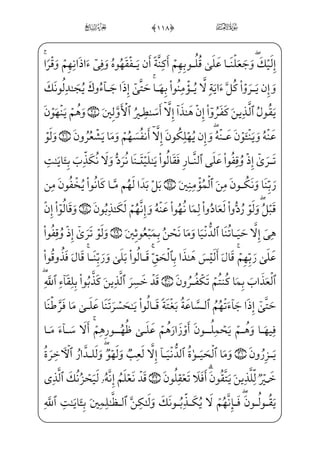 الجزء السابع ﴿١١٨﴾ سورة الأنعام
إِلَيْكَ ۖ وَجَعَلْنَا عَلَىٰ قُلُوبِهِمْ أَكِنَّةً أَن يَفْقَهُوهُ وَفِىٓ ءَاذَانِهِمْ وَقْرًا ۚ
وَإِن يَرَوْا۟ كُلَّ ءَايَةٍ لَّا يُؤْمِنُوا۟ بِهَا ۚ حَتَّىٰٓ إِذَا جَآءُوكَ يُجَـٰدِلُونَكَ
يَقُولُ ٱلَّذِينَ كَفَرُوٓا۟ إِنْ هَـٰذَآ إِلَّآ أَسَـٰطِيرُ ٱلْأَوَّلِينَ ۝ وَهُمْ يَنْهَوْنَ
عَنْهُ وَيَنْـَٔوْنَ عَنْهُ ۖ وَإِن يُهْلِكُونَ إِلَّآ أَنفُسَهُمْ وَمَا يَشْعُرُونَ ۝ وَلَوْ
تَرَىٰٓ إِذْ وُقِفُوا۟ عَلَى ٱلنَّارِ فَقَالُوا۟ يَـٰلَيْتَنَا نُرَدُّ وَلَا نُكَذِّبَ بِـَٔايَـٰتِ
رَبِّنَا وَنَكُونَ مِنَ ٱلْمُؤْمِنِينَ ۝ بَلْ بَدَا لَهُم مَّا كَانُوا۟ يُخْفُونَ مِن
قَبْلُ ۖ وَلَوْ رُدُّوا۟ لَعَادُوا۟ لِمَا نُهُوا۟ عَنْهُ وَإِنَّهُمْ لَكَـٰذِبُونَ ۝ وَقَالُوٓا۟ إِنْ
هِىَ إِلَّا حَيَاتُنَا ٱلدُّنْيَا وَمَا نَحْنُ بِمَبْعُوثِينَ ۝ وَلَوْ تَرَىٰٓ إِذْ وُقِفُوا۟
عَلَىٰ رَبِّهِمْ ۚ قَالَ أَلَيْسَ هَـٰذَا بِٱلْحَقِّ ۚ قَالُوا۟ بَلَىٰ وَرَبِّنَا ۚ قَالَ فَذُوقُوا۟
ٱلْعَذَابَ بِمَا كُنتُمْ تَكْفُرُونَ ۝ قَدْ خَسِرَ ٱلَّذِينَ كَذَّبُوا۟ بِلِقَآءِ ٱللَّهِ ۖ
حَتَّىٰٓ إِذَا جَآءَتْهُمُ ٱلسَّاعَةُ بَغْتَةً قَالُوا۟ يَـٰحَسْرَتَنَا عَلَىٰ مَا فَرَّطْنَا
فِيهَا وَهُمْ يَحْمِلُونَ أَوْزَارَهُمْ عَلَىٰ ظُهُورِهِمْ ۚ أَلَا سَآءَ مَا
يَزِرُونَ ۝ وَمَا ٱلْحَيَوٰةُ ٱلدُّنْيَآ إِلَّا لَعِبٌ وَلَهْوٌ ۖ وَلَلدَّارُ ٱلْـَٔاخِرَةُ
خَيْرٌ لِّلَّذِينَ يَتَّقُونَ ۗ أَفَلَا تَعْقِلُونَ ۝ قَدْ نَعْلَمُ إِنَّهُۥ لَيَحْزُنُكَ ٱلَّذِى
يَقُولُونَ ۖ فَإِنَّهُمْ لَا يُكَذِّبُونَكَ وَلَـٰكِنَّ ٱلظَّـٰلِمِينَ بِـَٔايَـٰتِ ٱللَّهِ